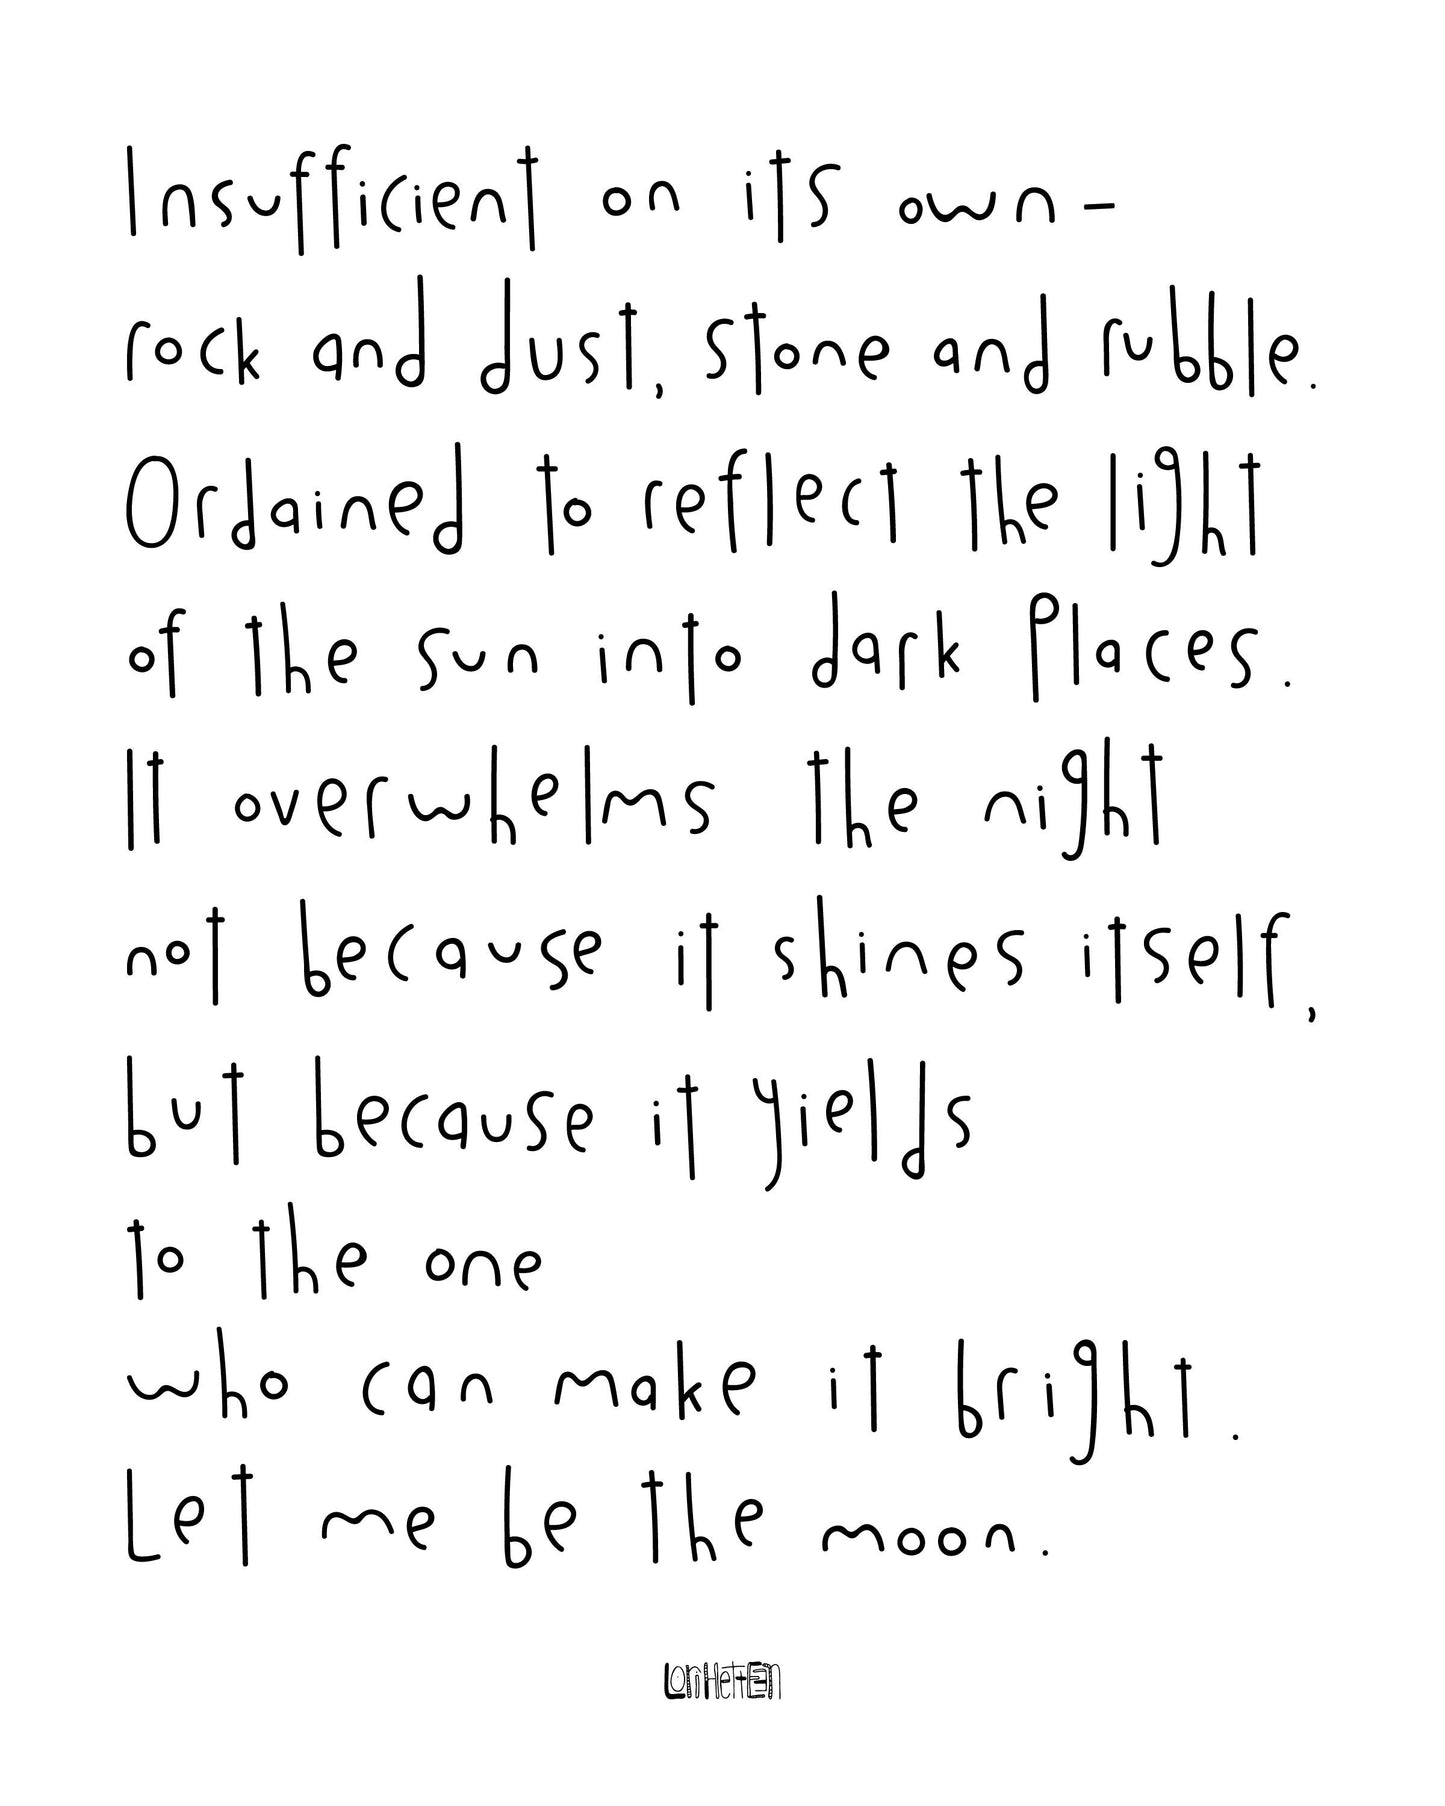 Insufficient on its own-
rock and dust, stone and rubble.
Ordained to reflect the light
of the sun into dark Places.
It overwhelms the night
not because it shines itself,
but because it yields
to the one
who can make it bright.
Let me be the moon.
Lori HettEEn